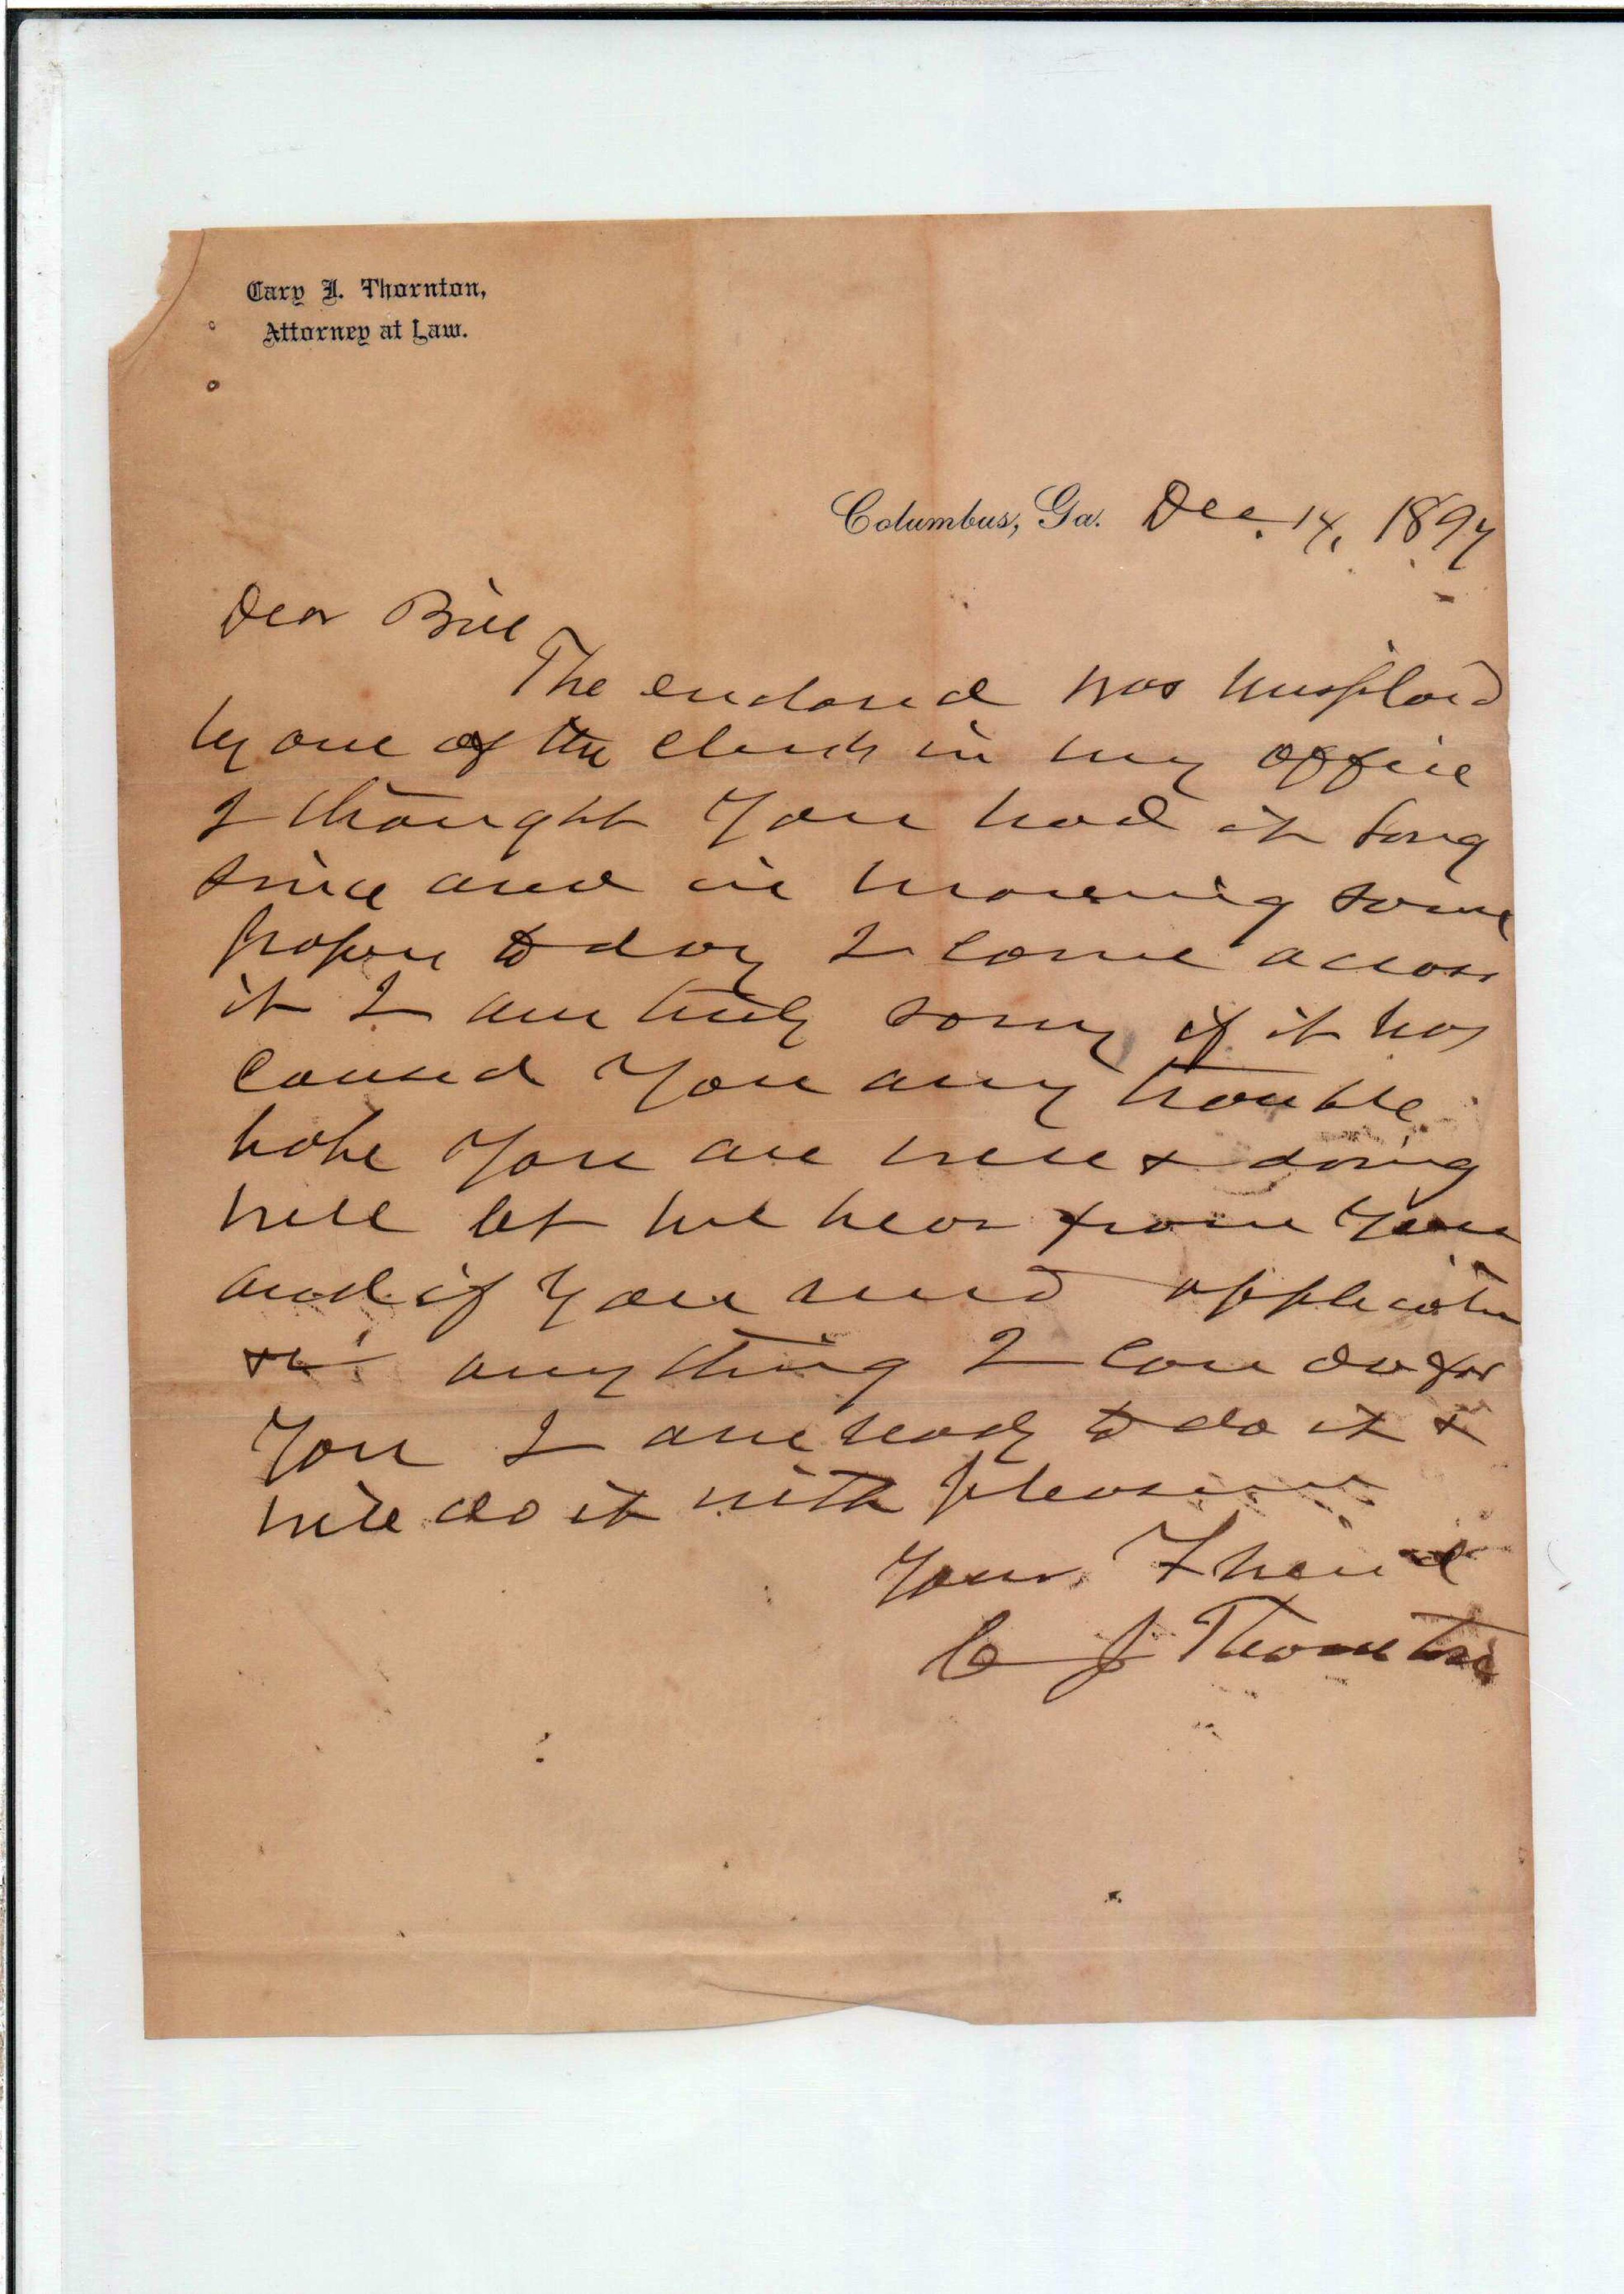 Cary J. Thornton,
Attorney at Law.
Columbus, Ga. Dec. 14, 1897
Dear Bill
The enclosed was misplaced
by one of the clerks in my office
I thought you had it long
since and in moving some
papers to day I came across
it I am truly sorry if it has
caused you any trouble
hope you are well & doing
well let me hear from you
and if you need application
anything I can do for
you I am ready to do it &
will do it with pleasure
Your Friend
C J Thornton